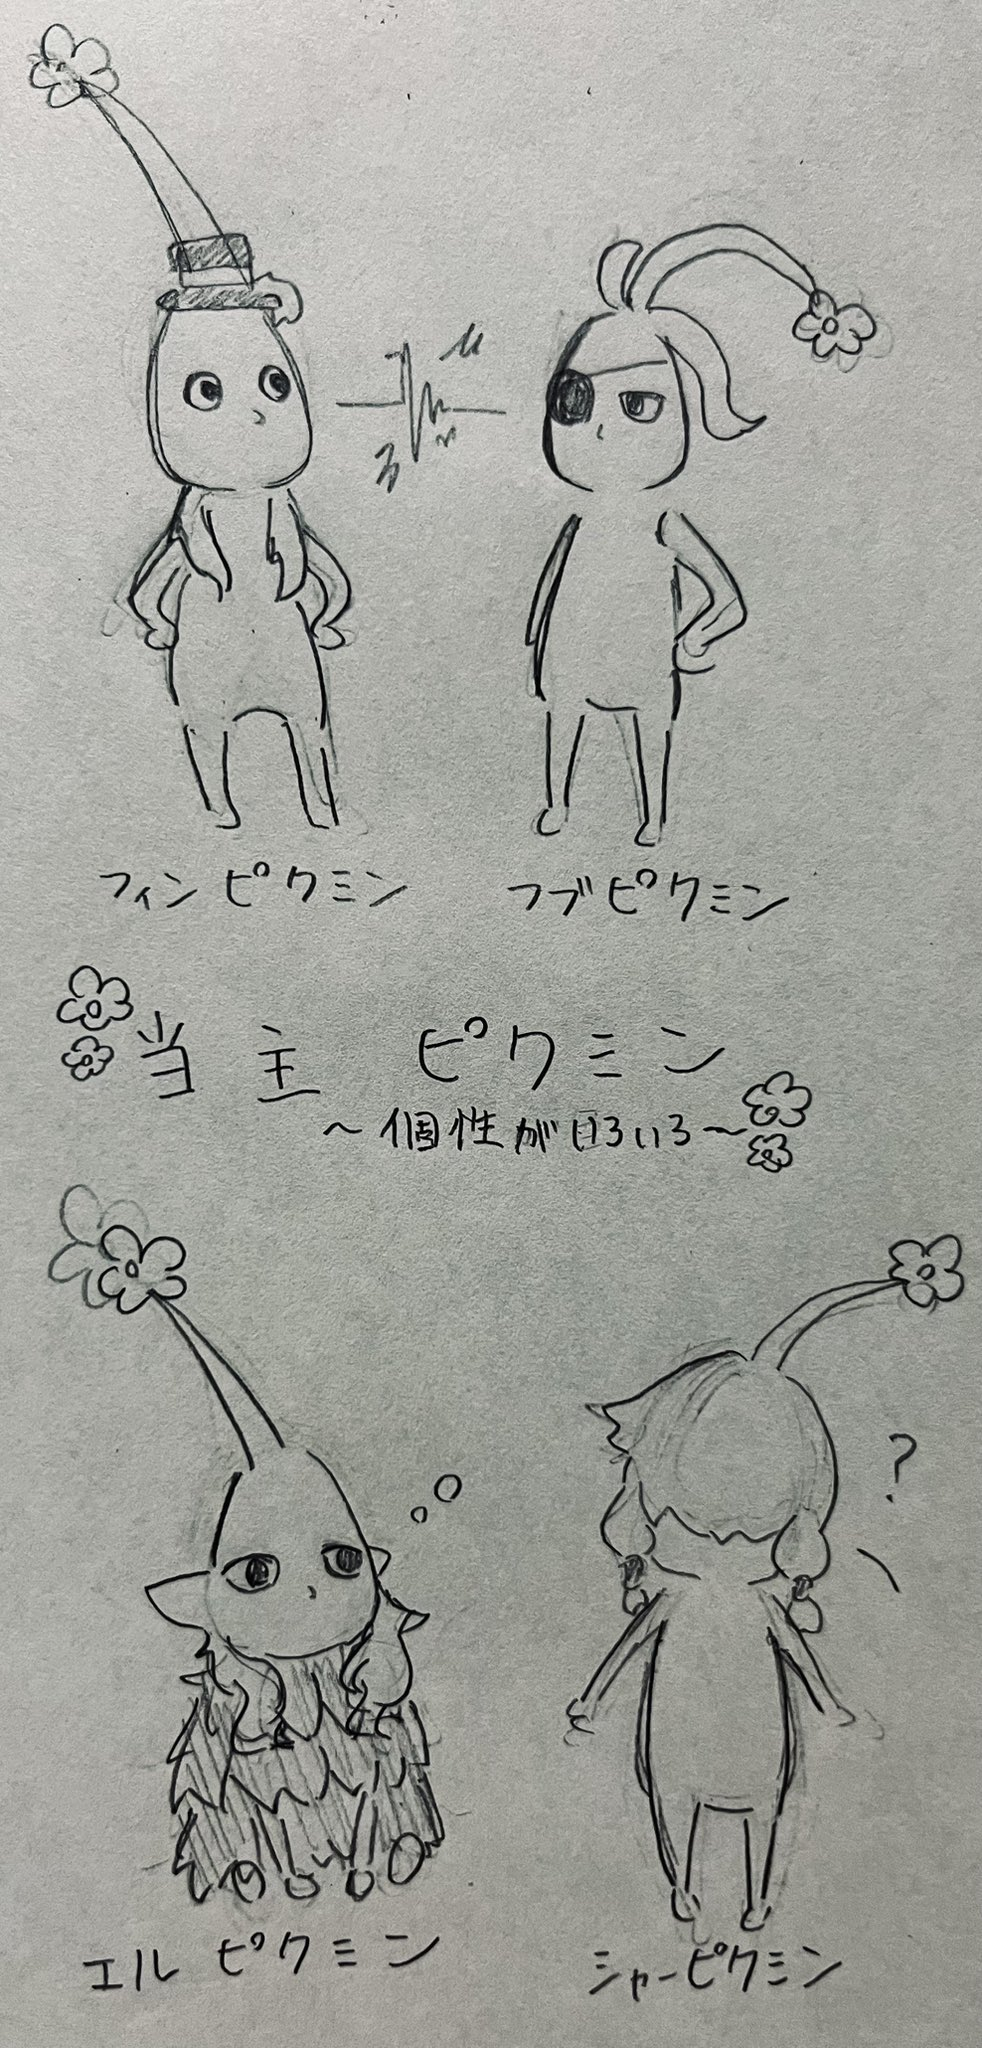 フィンピクミン
フブピクミン
当主 ピクミン
～個性がいろいろ～
?
エルピクミン
シャーピクミン